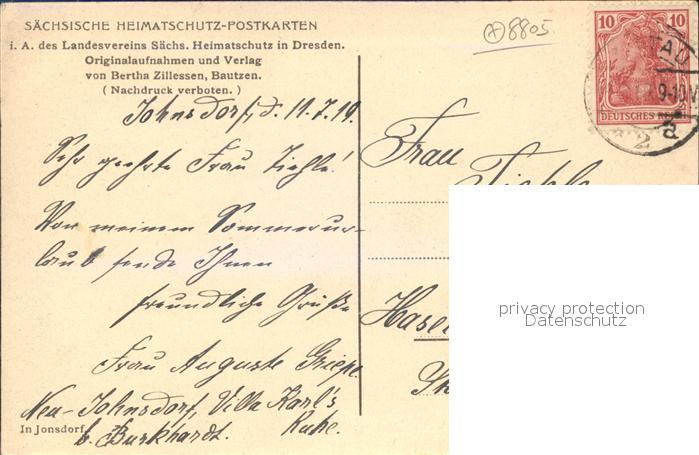 SÄCHSISCHE HEIMATSCHUTZ-POSTKARTEN
i. A. des Landesvereins Sächs. Heimatschutz in Dresden.
Originalaufnahmen und Verlag
von Bertha Zillessen, Bautzen.
(Nachdruck verboten.)
8805
10 10
DEUTSCHES REICH
TAU
9-10V
2 a
Johnsdorf, d. 11.7.19.
Sehr geehrte Frau Tiehle!
Von meinem Sommerur-
laub sende Ihnen
freundliche Grüße
Frau Auguste
Neu-Johnsdorf, Villa Karl's
b. Burkhardt. Ruhe.
In Jonsdorf.
Frau
Tiehle
Hasel
privacy protection
Datenschutz